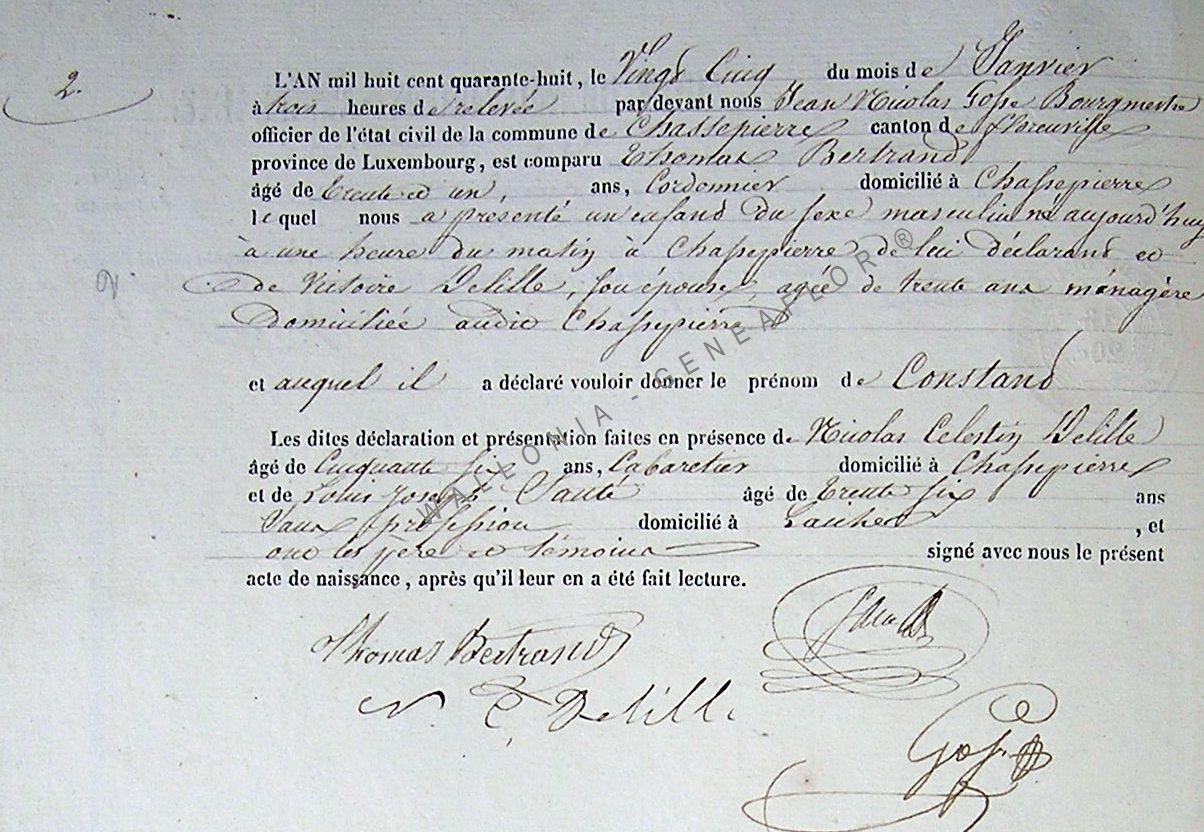 2.
L'AN mil huit cent quarante-huit, le Vingt Cinq, du mois de Janvier
à trois heures de relevée par devant nous Jean Nicolas Gosse Bourgmestre
officier de l'état civil de la commune de Chassepierre canton de florenville
province de Luxembourg, est comparu Thomas Bertrand
âgé de trente et un, ans, Cordonnier domicilié à Chassepierre
lequel nous a présenté un enfand du sexe masculin né aujourd'huy
à une heure du matin à Chassepierre de lui déclarand et
de Victoire Delille, son épouse, agée de trente ans ménagère
Domiciliée audit Chassepierre
et auquel il a déclaré vouloir donner le prénom de Constand
Les dites déclaration et présentation faites en présence de Nicolas Celestin Delille
âgé de Cinquante six ans, Cabaretier domicilié à Chassepierre
et de Louis Joseph Santé âgé de trente six ans
Sans profession domicilié à Laiche, et
ont les père et témoins signé avec nous le présent
acte de naissance, après qu'il leur en a été fait lecture.
Thomas Bertrand
N. C. Delille
Gosse
WALLONIA - GENEAFLOR ®